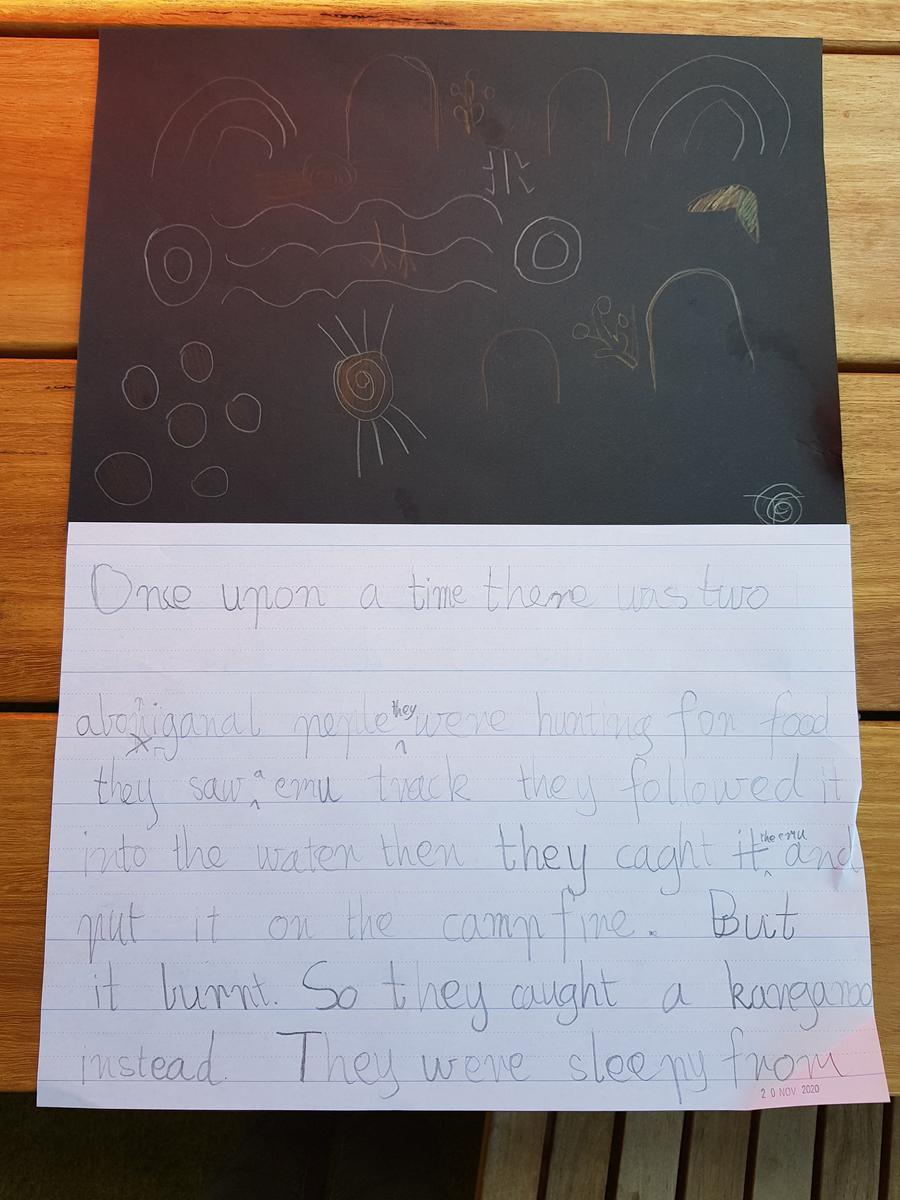 Once upon a time there was two
aboriganal peple they were hunting for food
they saw a emu track they followed it
into the water then they caght it the emu and
put it on the camp fire. But
it burnt. So they caught a kangaroo
instead. They were sleepy from
20 NOV 2020